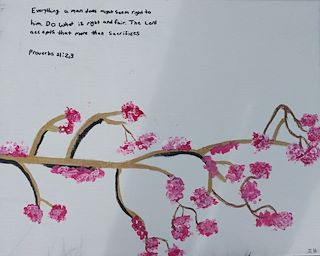 Everything a man does might seem right to
him. Do What is right and fair. The Lord
accepts that more than Sacrifices
Proverbs 21:2,3